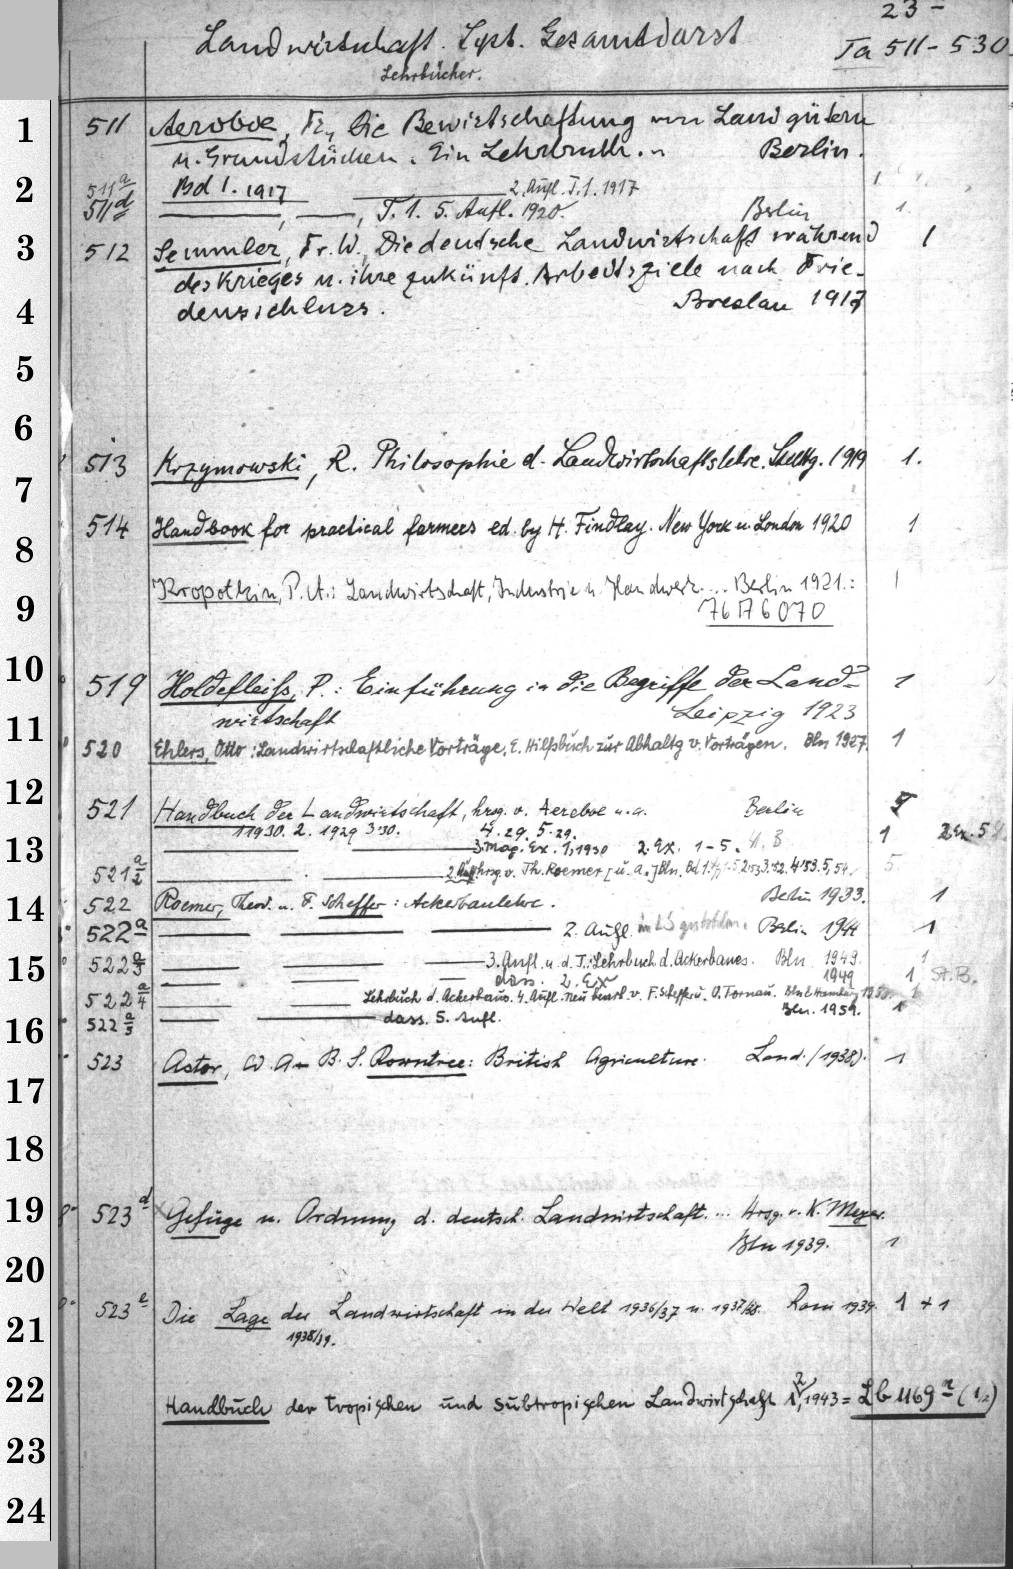 23-
Landwirtschaft. Syst. Gesamtdarst
Ta 511-530
Lehrbücher.
1
511 Aeroboe, Fr., Die Bewirtschaftung von Landgütern
u. Grundstücken. Ein Lehrbuch. Berlin.
2
511a Bd 1. 1917 2. Aufl. T. 1. 1917 1
511d T. 1. 5. Aufl. 1920. Berlin 1.
3
512 Semmler, Fr. W., Die deutsche Landwirtschaft während 1
des Krieges u. ihre zukünft. Arbeitsziele nach Frie-
4
densschluss. Breslau 1917
5
6
513 Krzymowski, R. Philosophie d. Landwirtschaftslehre. Stuttg. 1919 1.
7
514 Handbook for practical farmers ed. by H. Findlay. New York u. London 1920 1
8
Kropotkin, P. A.: Landwirtschaft, Industrie u. Handwerk... Berlin 1921.: 1
9
76 176 070
10
519 Holdefleiss, P.: Einführung in die Begriffe der Land- 1
wirtschaft Leipzig 1923
11
520 Ehlers, Otto: Landwirtschaftliche Vorträge, E. Hilfsbuch zur Abhaltg v. Vorträgen. Bln 1927. 1
12
521 Handbuch der Landwirtschaft, hrsg. v. Aereboe u. a. Berlin
1 1930. 2. 1929 3 '30. 4. 29. 5. 29.
13
3. Mag. Ex. 1, 1930 2. Ex. 1-5. 1 2. Ex. 5
521 a/2 2. Aufl hrsg. v. Th. Roemer [u. a.] Bln. 5
14
522 Roemer, Theod. u. F. Scheffer: Ackerbaulehre. Berlin 1933. 1
522a 2. Aufl. Berlin 1944 1
15
522 a/3 3. Aufl. u. d. T.: Lehrbuch d. Ackerbaues. Bln 1949. 1
dass. 2. Ex 1949 1 St.B.
522 a/4 Lehrbuch d. Ackerbaus. 4. Aufl. neu bearb. v. F. Scheffer u. O. Tornau. Bln & Hamburg 1953. 1
16
522 a/5 dass. 5. Aufl. Bln. 1959. 1
523 Astor, W. A. B. S. Rowntree: British Agriculture. Lond. /1938). 1
17
18
19
523d Gefüge u. Ordnung d. deutsch. Landwirtschaft... Hrsg. v. K. Meyer.
Bln 1939. 1
20
523e Die Lage der Landwirtschaft in der Welt 1936/37 u. 1937/38. Rom 1939. 1 + 1
21
1938/39.
22
Handbuch der tropischen und subtropischen Landwirtschaft 1, 2 1943 = Lb 1169a (1,2)
23
24